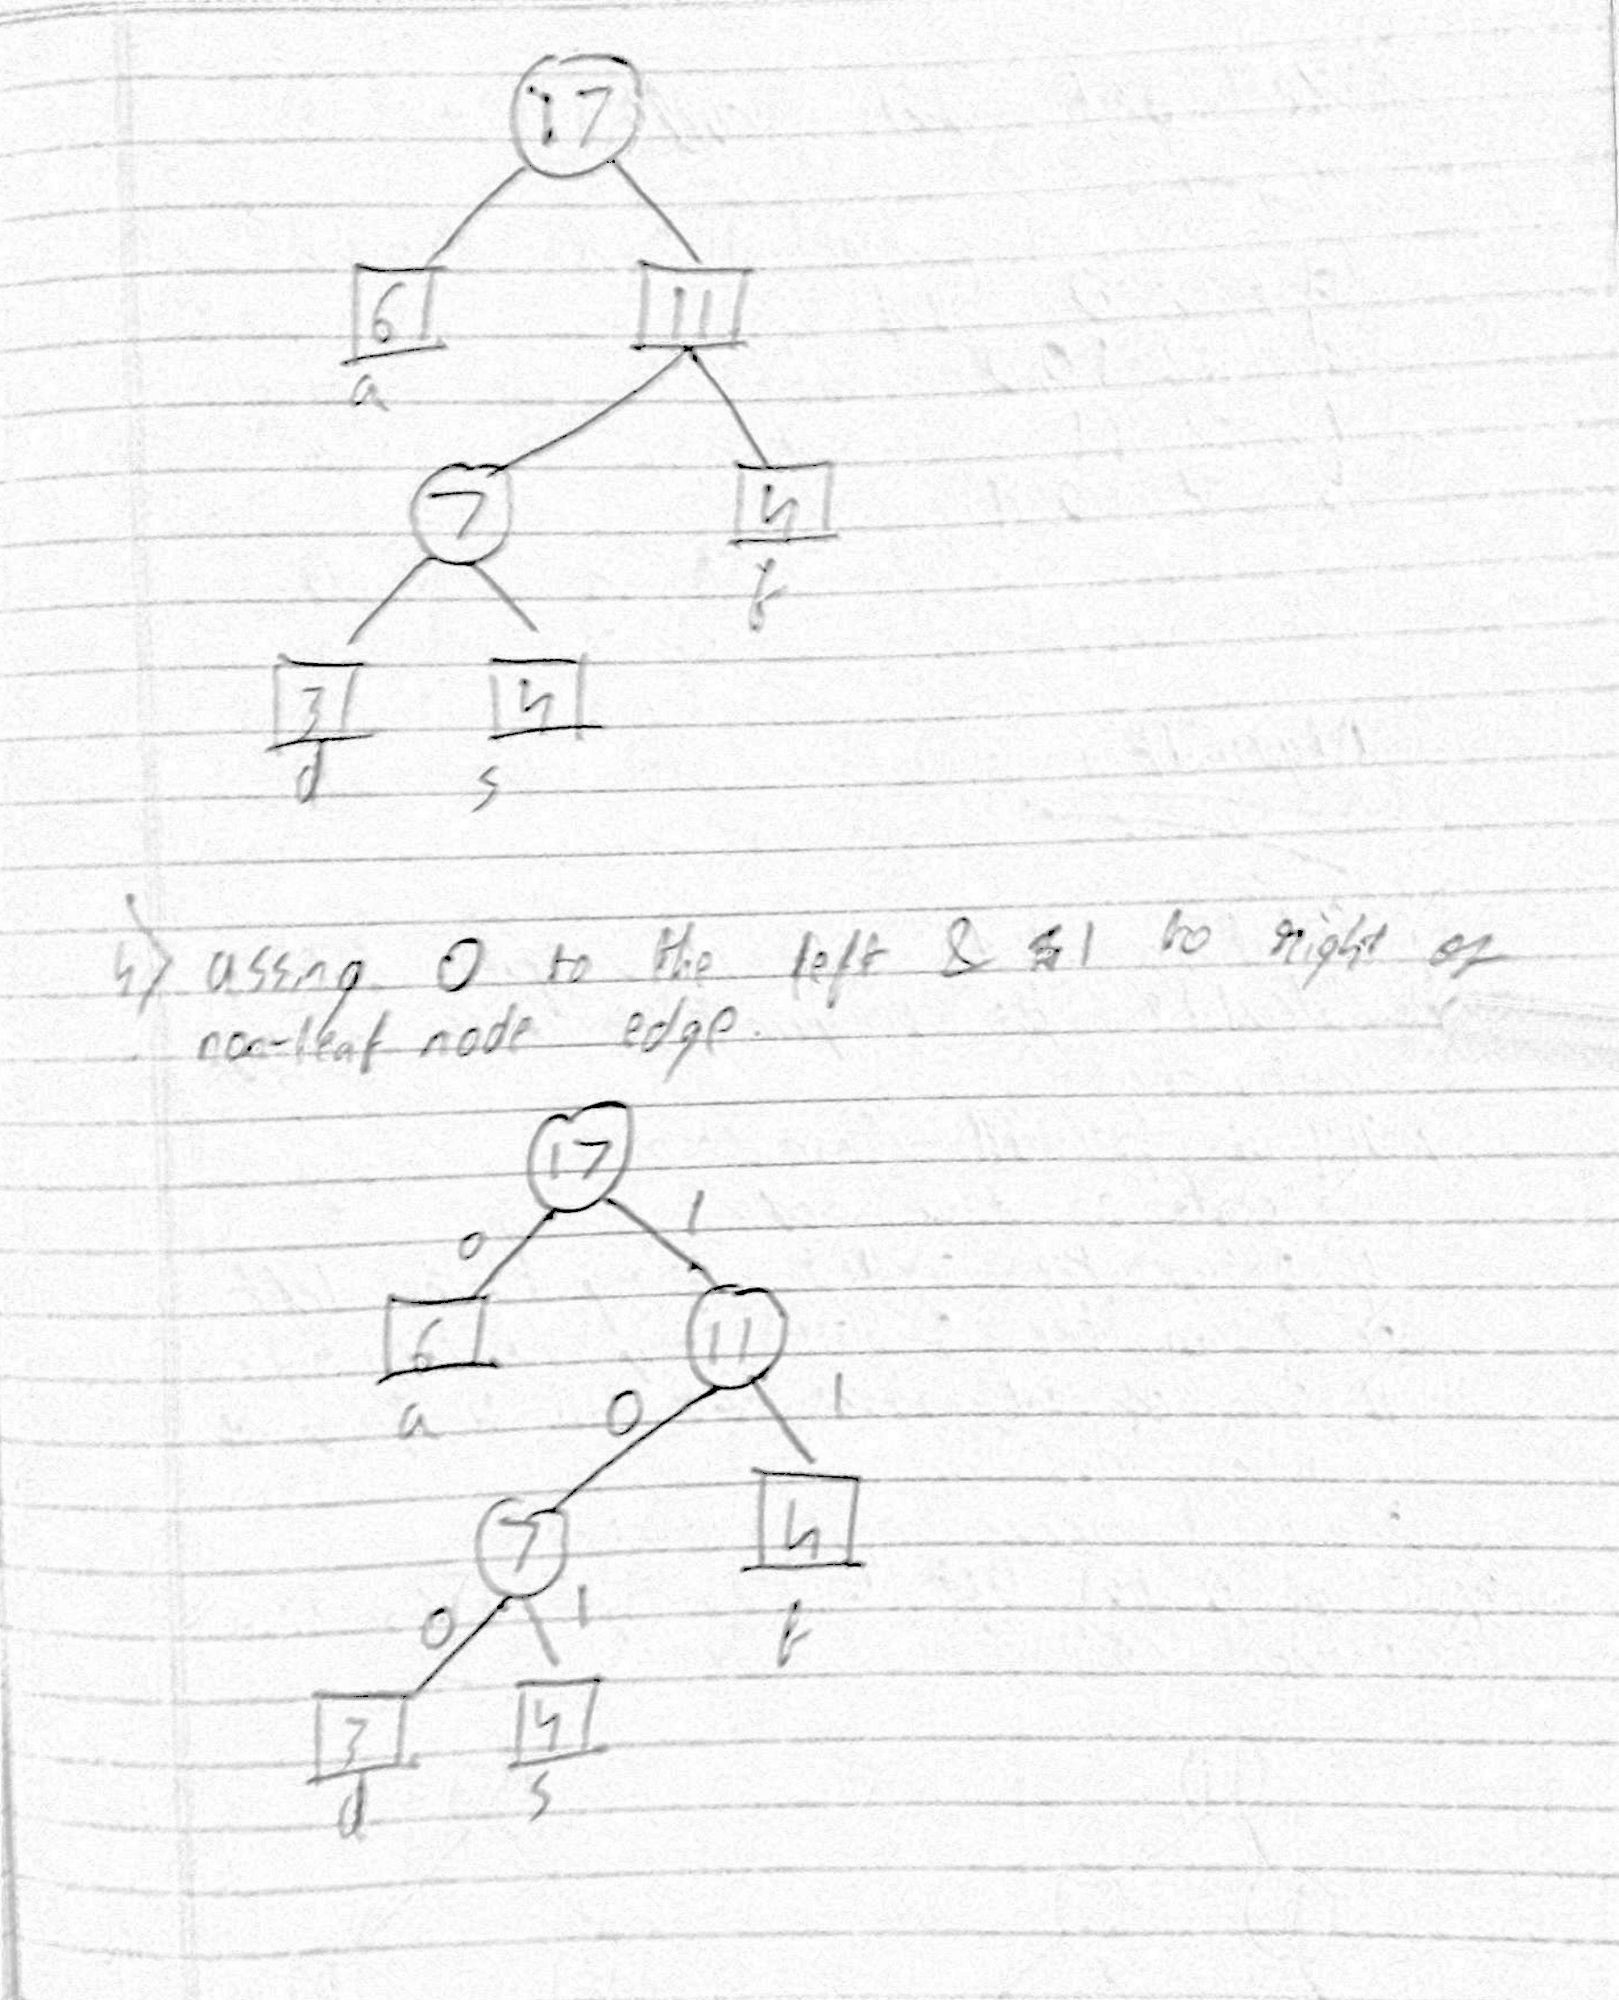 17
6 11
a
7 4
f
3 4
d s
4) assing 0 to the left & 1 to right of
non-leaf node edge.
17
0 1
6 11
a 0 1
7 4
0 1 f
3 4
d s